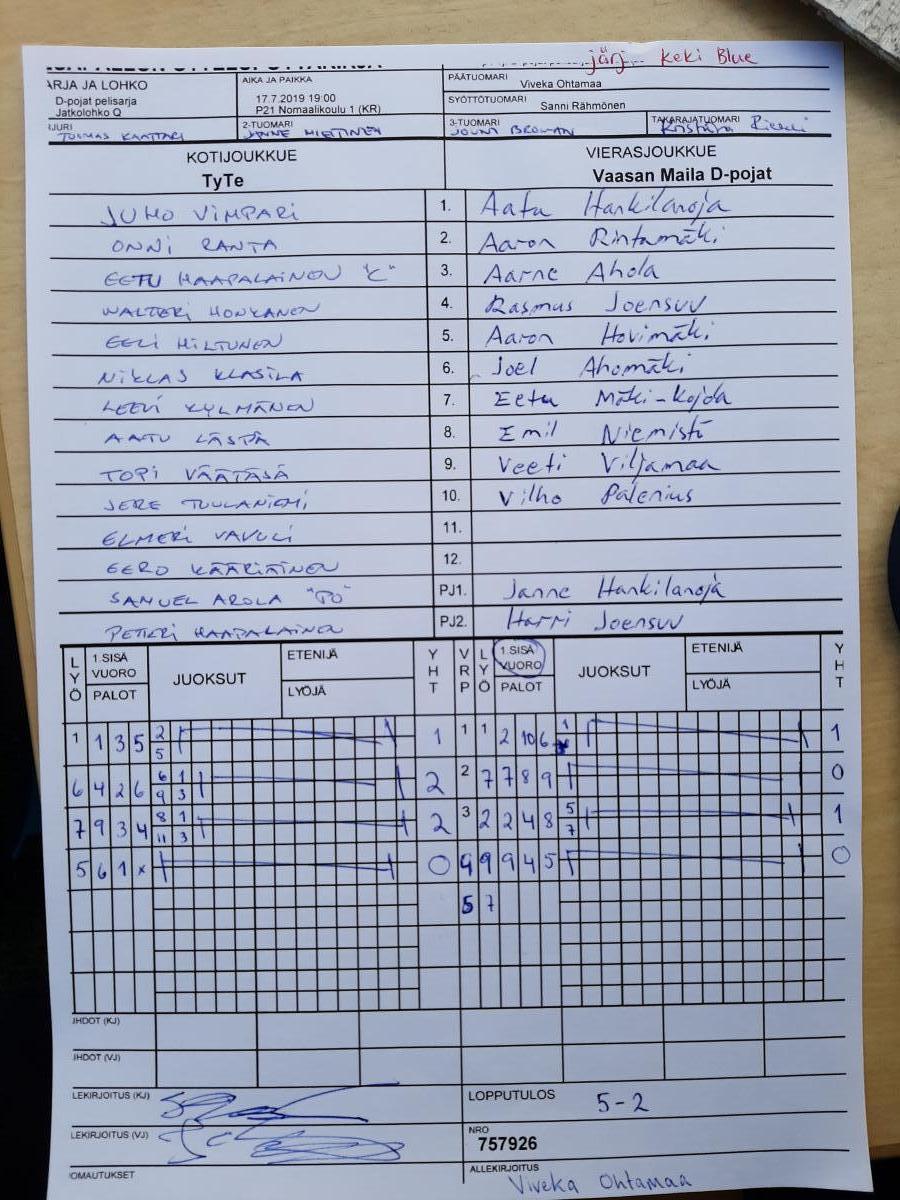 järj. Keki Blue
ARJA JA LOHKO
D-pojat pelisarja
Jatkolohko Q
AIKA JA PAIKKA
17.7.2019 19:00
P21 Nomaalikoulu 1 (KR)
PÄÄTUOMARI
Viveka Ohtamaa
SYÖTTÖTUOMARI
Sanni Rähmönen
TUOMAS KAATTARI
2-TUOMARI
JANNE MIETTINEN
3-TUOMARI
JOUNI BROMAN
TAKARAJATUOMARI
KOTIJOUKKUE
TyTe
VIERASJOUKKUE
Vaasan Maila D-pojat
JUHO VIMPARI 1. Aatu Hankilanoja
ONNI RANTA 2. Aaron Rintamäki
EETU HAAPALAINEN "C" 3. Aarne Ahola
WALTERI HONKANEN 4. Rasmus Joensuu
EELI HILTUNEN 5. Aaron Hovimäki
NIKLAS KLASILA 6. Joel Ahomäki
LEEVI KYLMÄNEN 7. Eetu Mäki-Kojda
AATU LÄSTJÄ 8. Emil Niemistö
TOPI VÄÄTÄSÄ 9. Veeti Viljamaa
JERE TUULANIEMI 10. Vilho Palenius
ELMERI VAVULI 11.
EERO KÄÄRIÄINEN 12.
SAMUEL AROLA "PÖ" PJ1. Janne Hankilanoja
PETERI HAAPALAINEN PJ2. Harri Joensuu
LYÖ 1.SISÄ VUORO PALOT JUOKSUT ETENIJÄ LYÖJÄ YHT VRP LYÖ 1.SISÄ VUORO PALOT JUOKSUT ETENIJÄ LYÖJÄ YHT
1 1 3 5 2 5 1 1 1 2 10 6 1 1
6 4 2 6 6 1 9 3 2 2 7 7 8 9 0
7 9 3 4 8 1 11 3 2 3 2 2 4 8 5 7 1
5 6 1 x 0 4 9 9 4 5 0
5 7
JHDOT (KJ)
JHDOT (VJ)
LEKIRJOITUS (KJ)
LEKIRJOITUS (VJ)
OMAUTUKSET
LOPPUTULOS 5-2
NRO
757926
ALLEKIRJOITUS
Viveka Ohtamaa